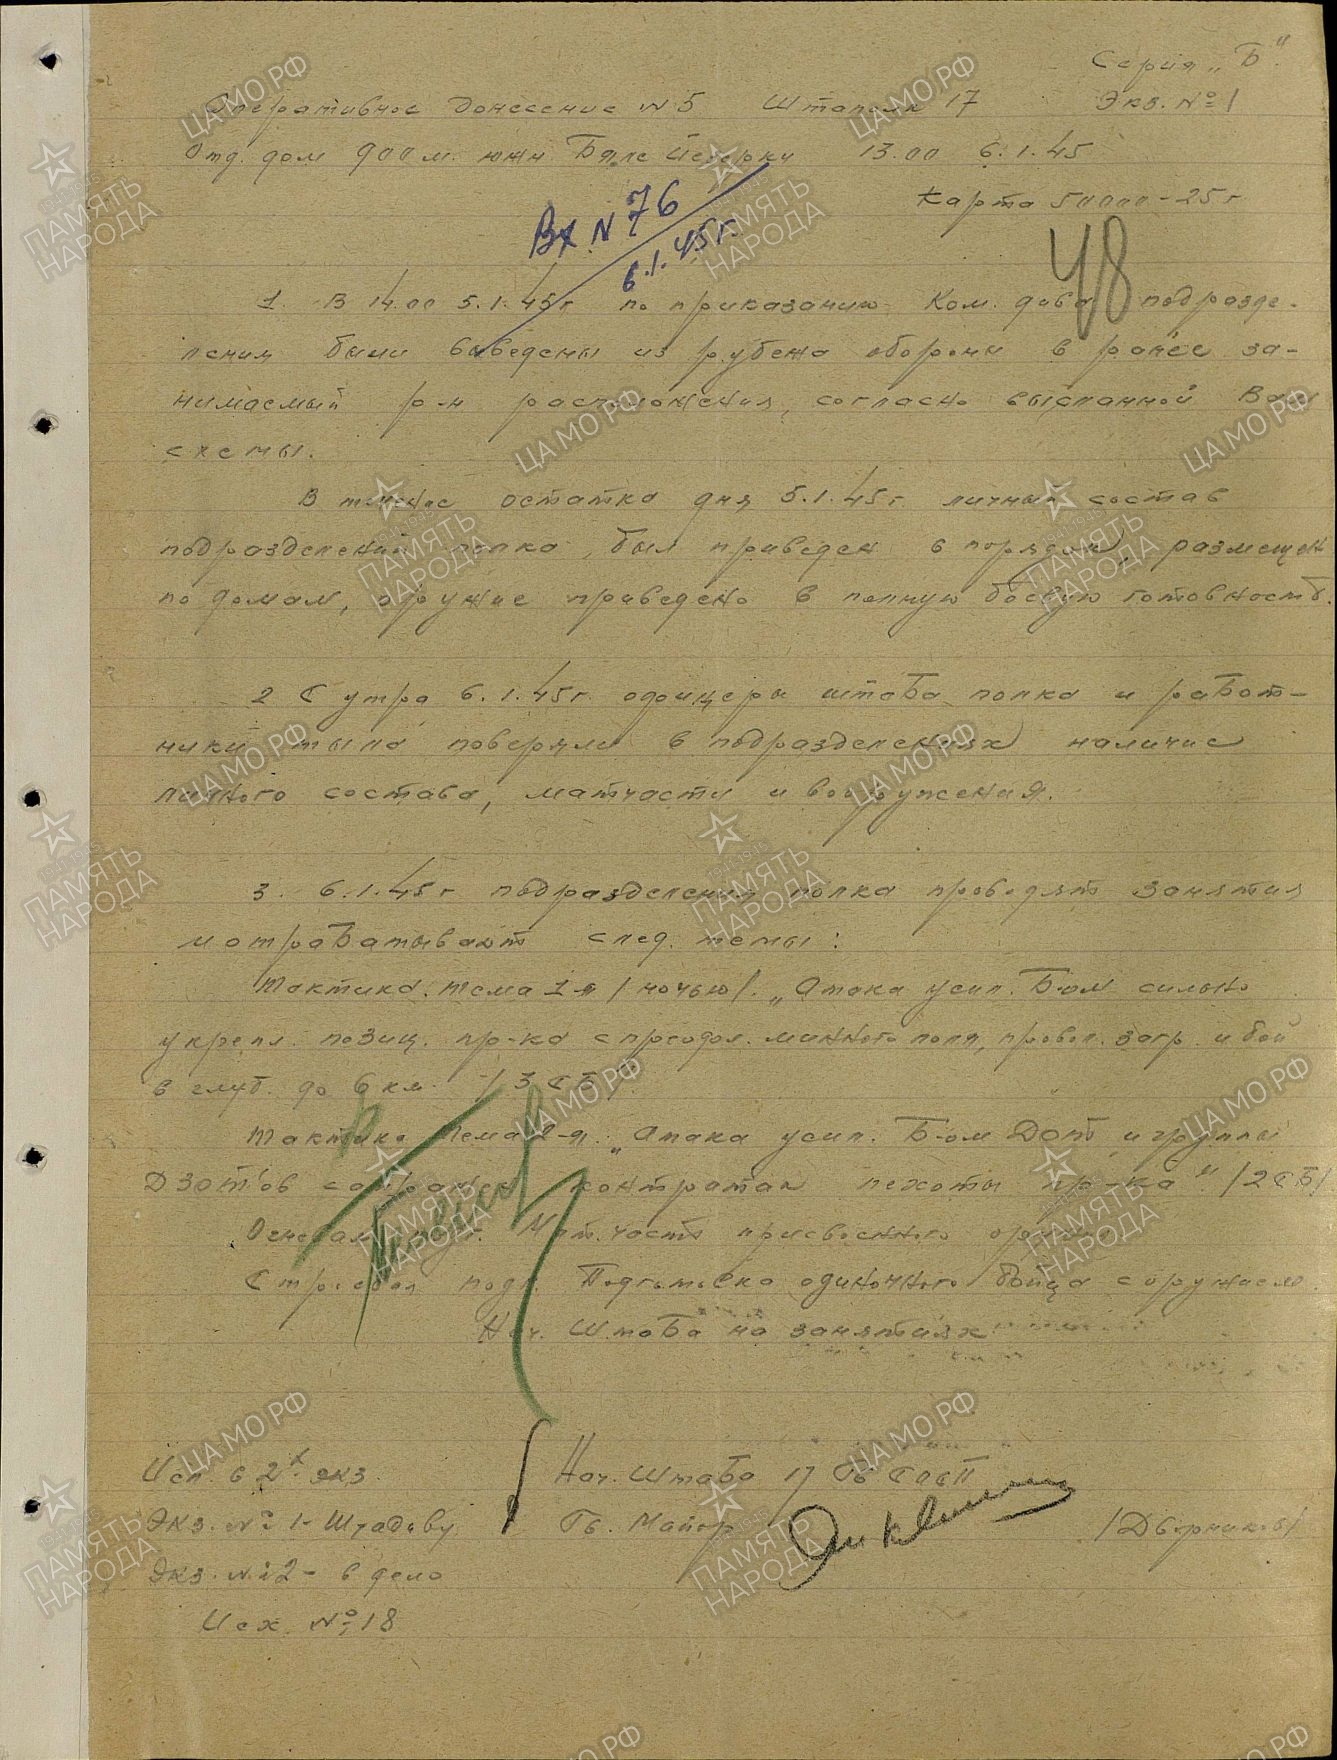 Серия „Б“
Оперативное донесение N 5 Штаполк 17 Экз. № 1
Отд. дом 900 м. южн. Бяле 13.00 6.1.45
Карта 50000-25г
Вх N 76
6.1.45г.
48
1. В 14.00 5.1.45г по приказанию Ком. дива подразде-
ления были выведены из рубежа обороны в ранее за-
нимаемый р-н расположения, согласно высланной Вам
схемы.
В течение остатка дня 5.1.45г личный состав
подразделений полка, был приведен в порядок, размещен
по домам, оружие приведено в полную боевую готовность.
2 С утра 6.1.45г. офицеры штаба полка и работ-
ники тыла поверяли в подразделениях наличие
личного состава, матчасти и вооружения.
3. 6.1.45г подразделения полка проводят занятия
и отрабатывают след. темы:
Тактика. Тема 1-я /ночью/. „Атака усил. Б-ом сильно
укрепл. позиц. пр-ка с преодол. минного поля, провол. загр. и бой
в глуб. до 6 км. /3 СБ/.
Тактика Тема 2-я. „Атака усил. Б-ом Дот и группы
Дзот'ов с контратак пехоты пр-ка“ /2 СБ/
Мат.часть присвоенного
Строевая подг. Подготовка одиночного бойца с оружием.
Нач. Штаба на занятиях
Исп. в 2х экз.
Нач. Штаба 17 Гв СП
Экз. № 1- Штадиву
Гв. Майор /Дворников/
Экз. № 2- в дело
Исх. № 18
ЦА МО РФ
ПАМЯТЬ
НАРОДА